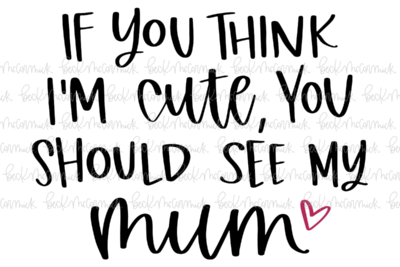 IF YOU THINK
I'M cute, YOU
SHOULD SEE MY
mum